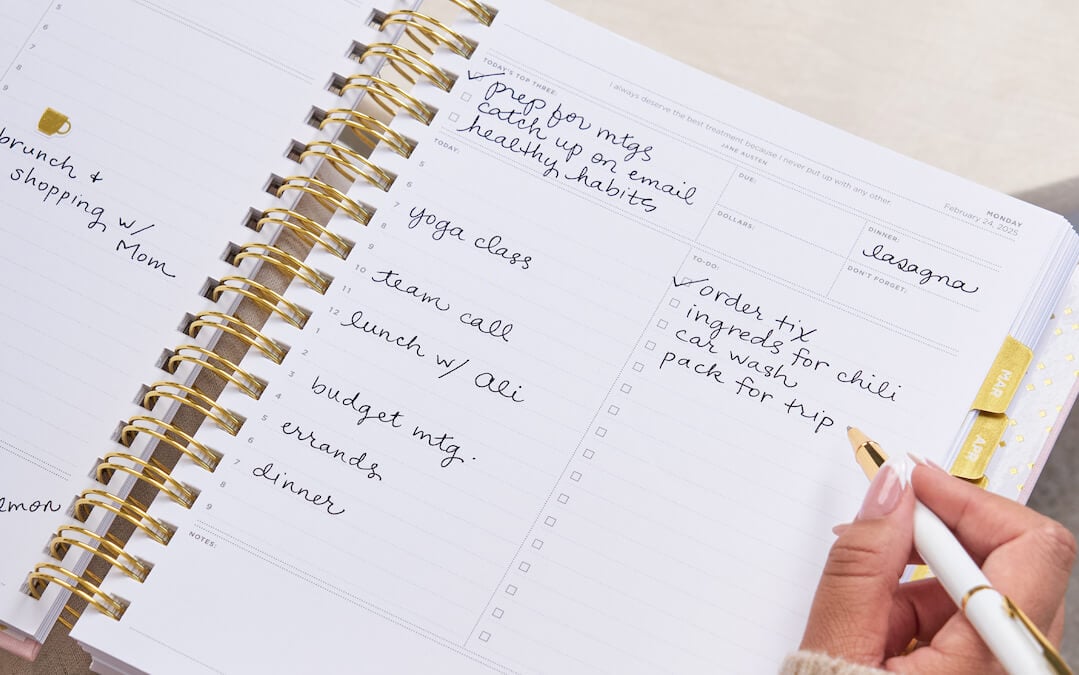 5
6
7
8
9
brunch +
shopping w/
Mom
emon
I always deserve the best treatment because I never put up with any other.
JANE AUSTEN
MONDAY
February 24, 2025
TODAY'S TOP THREE:
prep for mtgs
catch up on email
healthy habits
DUE:
DOLLARS:
DINNER:
lasagna
DON'T FORGET:
TODAY:
5
6
7 yoga class
8
9
10 team call
11
12 lunch w/ Ali
1
2
3 budget mtg.
4
5 errands
6
7 dinner
8
9
NOTES:
TO-DO:
order tix
ingreds for chili
car wash
pack for trip
MAR
APR